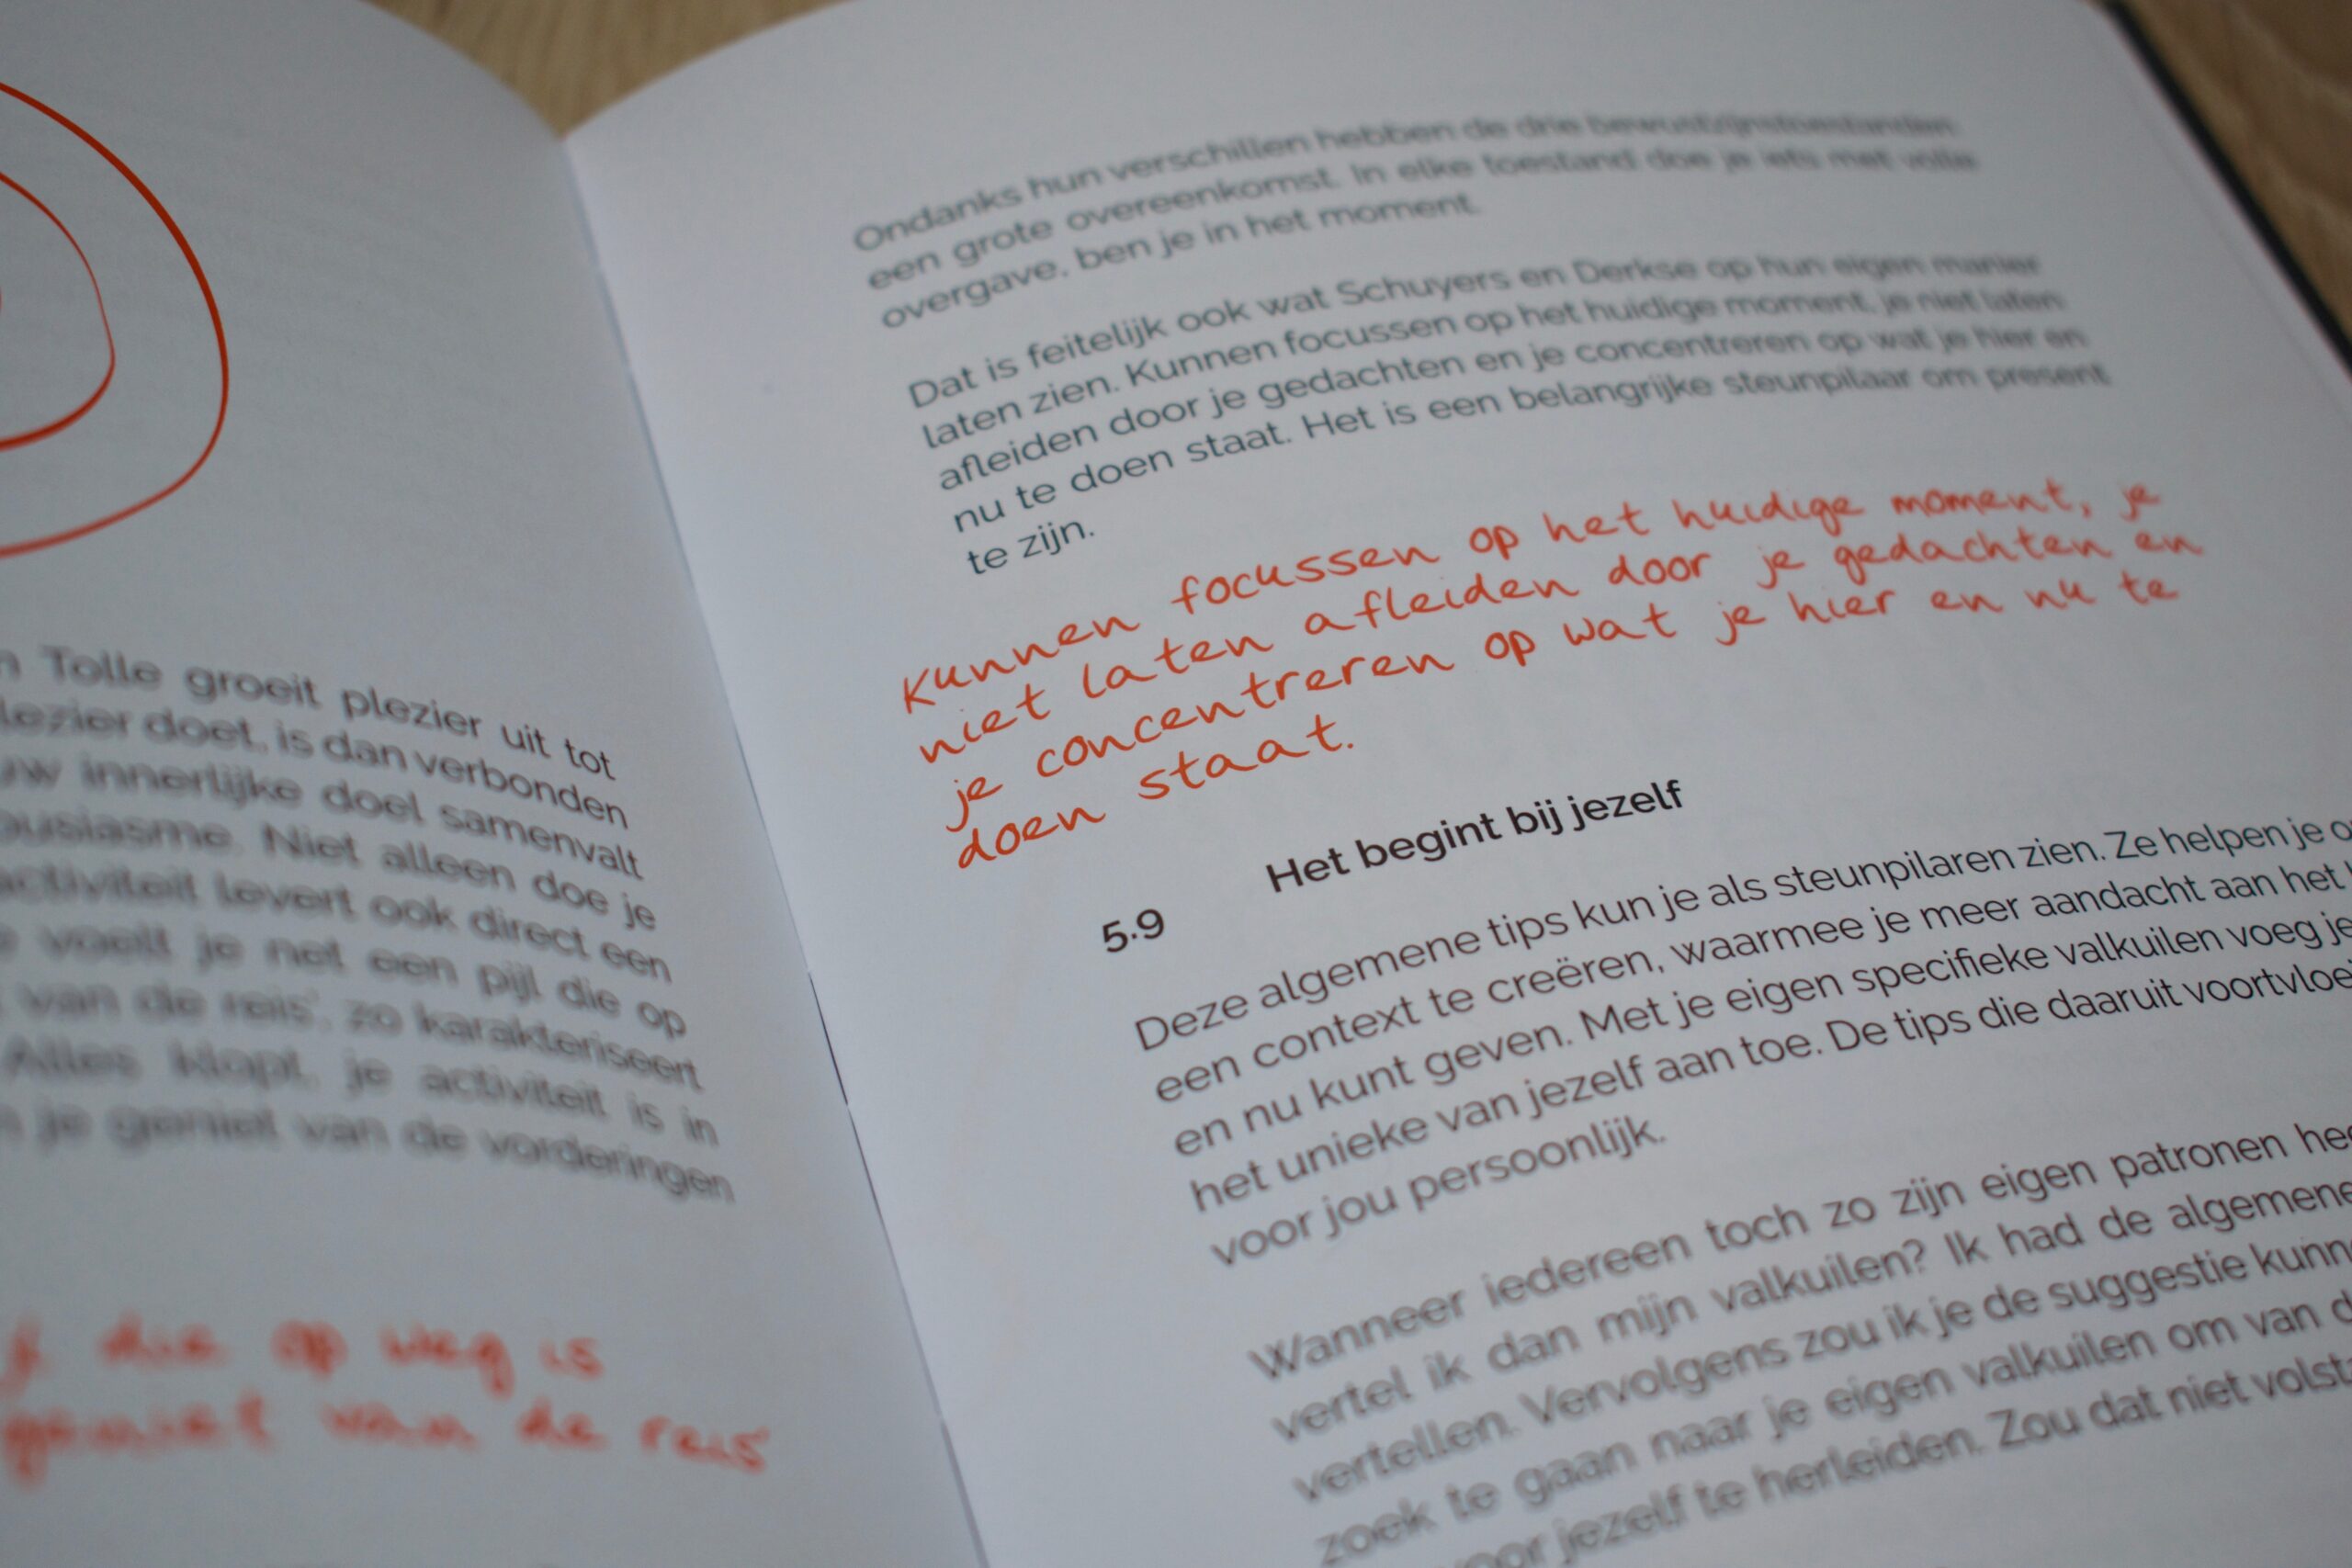 Tolle groeit plezier uit tot
plezier doet, is dan verbonden
uw innerlijke doel samenvalt
Niet alleen doe je
activiteit levert ook direct een
voelt je net een pijl die op
van de reis', zo karakteriseert
Alles klopt, je activiteit is in
je geniet van de vorderingen
die op weg is
geniet van de reis
Ondanks hun verschillen hebben de drie bewustzijnstoestanden
een grote overeenkomst. In elke toestand doe je iets met volle
overgave, ben je in het moment.
Dat is feitelijk ook wat Schuyers en Derkse op hun eigen manier
laten zien. Kunnen focussen op het huidige moment, je niet laten
afleiden door je gedachten en je concentreren op wat je hier en
nu te doen staat. Het is een belangrijke steunpilaar om present
te zijn.
Kunnen focussen op het huidige moment, je
niet laten afleiden door je gedachten en
je concentreren op wat je hier en nu te
doen staat.
5.9 Het begint bij jezelf
Deze algemene tips kun je als steunpilaren zien. Ze helpen je
een context te creëren, waarmee je meer aandacht aan het
en nu kunt geven. Met je eigen specifieke valkuilen voeg je
het unieke van jezelf aan toe. De tips die daaruit
voor jou persoonlijk.
Wanneer iedereen toch zo zijn eigen patronen
vertel ik dan mijn valkuilen? Ik had de algemene
vertellen. Vervolgens zou ik je de suggestie
zoek te gaan naar je eigen valkuilen om van
voor jezelf te herleiden. Zou dat niet